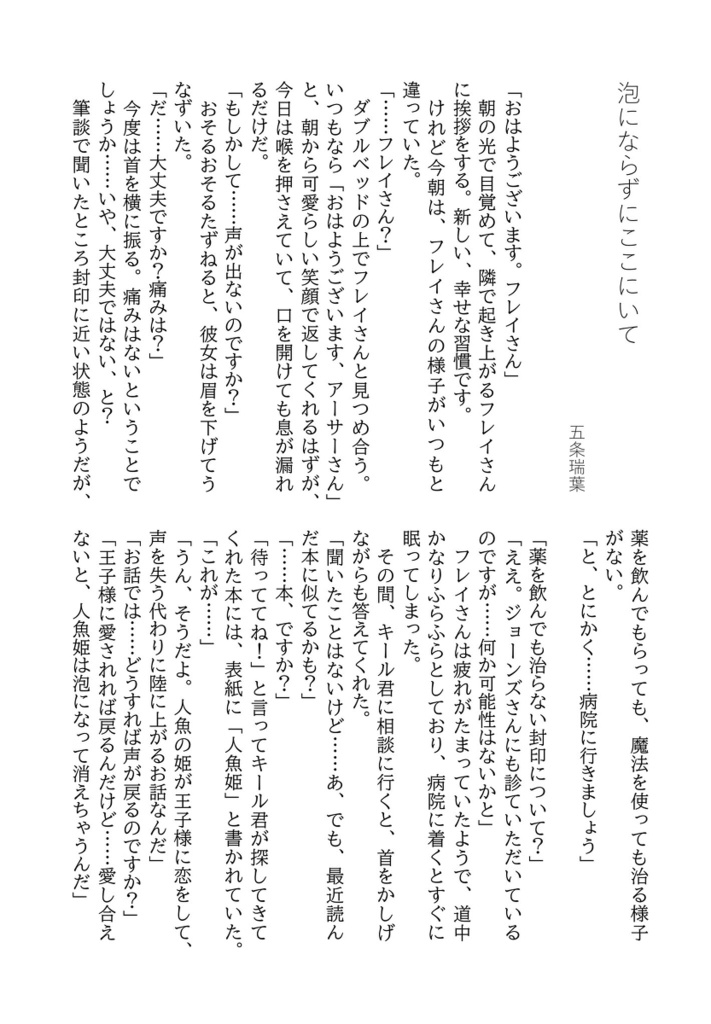 泡にならずにここにいて
五条瑞葉
「おはようございます。フレイさん」
朝の光で目覚めて、隣で起き上がるフレイさん
に挨拶をする。新しい、幸せな習慣です。
けれど今朝は、フレイさんの様子がいつもと
違っていた。
「……フレイさん?」
ダブルベッドの上でフレイさんと見つめ合う。
いつもなら「おはようございます、アーサーさん」
と、朝から可愛らしい笑顔で返してくれるはずが、
今日は喉を押さえていて、口を開けても息が漏れ
るだけだ。
「もしかして……声が出ないのですか?」
おそるおそるたずねると、彼女は眉を下げてう
なずいた。
「だ……大丈夫ですか?痛みは?」
今度は首を横に振る。痛みはないということで
しょうか……いや、大丈夫ではない、と?
筆談で聞いたところ封印に近い状態のようだが、
薬を飲んでもらっても、魔法を使っても治る様子
がない。
「と、とにかく……病院に行きましょう」
「薬を飲んでも治らない封印について?」
「ええ。ジョーンズさんにも診ていただいている
のですが……何か可能性はないかと」
フレイさんは疲れがたまっていたようで、道中
かなりふらふらとしており、病院に着くとすぐに
眠ってしまった。
その間、キール君に相談に行くと、首をかしげ
ながらも答えてくれた。
「聞いたことはないけど……あ、でも、最近読ん
だ本に似てるかも?」
「……本、ですか?」
「待っててね!」と言ってキール君が探してきて
くれた本には、表紙に「人魚姫」と書かれていた。
「これが……」
「うん、そうだよ。人魚の姫が王子様に恋をして、
声を失う代わりに陸に上がるお話なんだ」
「お話では……どうすれば声が戻るのですか?」
「王子様に愛されれば戻るんだけど……愛し合え
ないと、人魚姫は泡になって消えちゃうんだ」